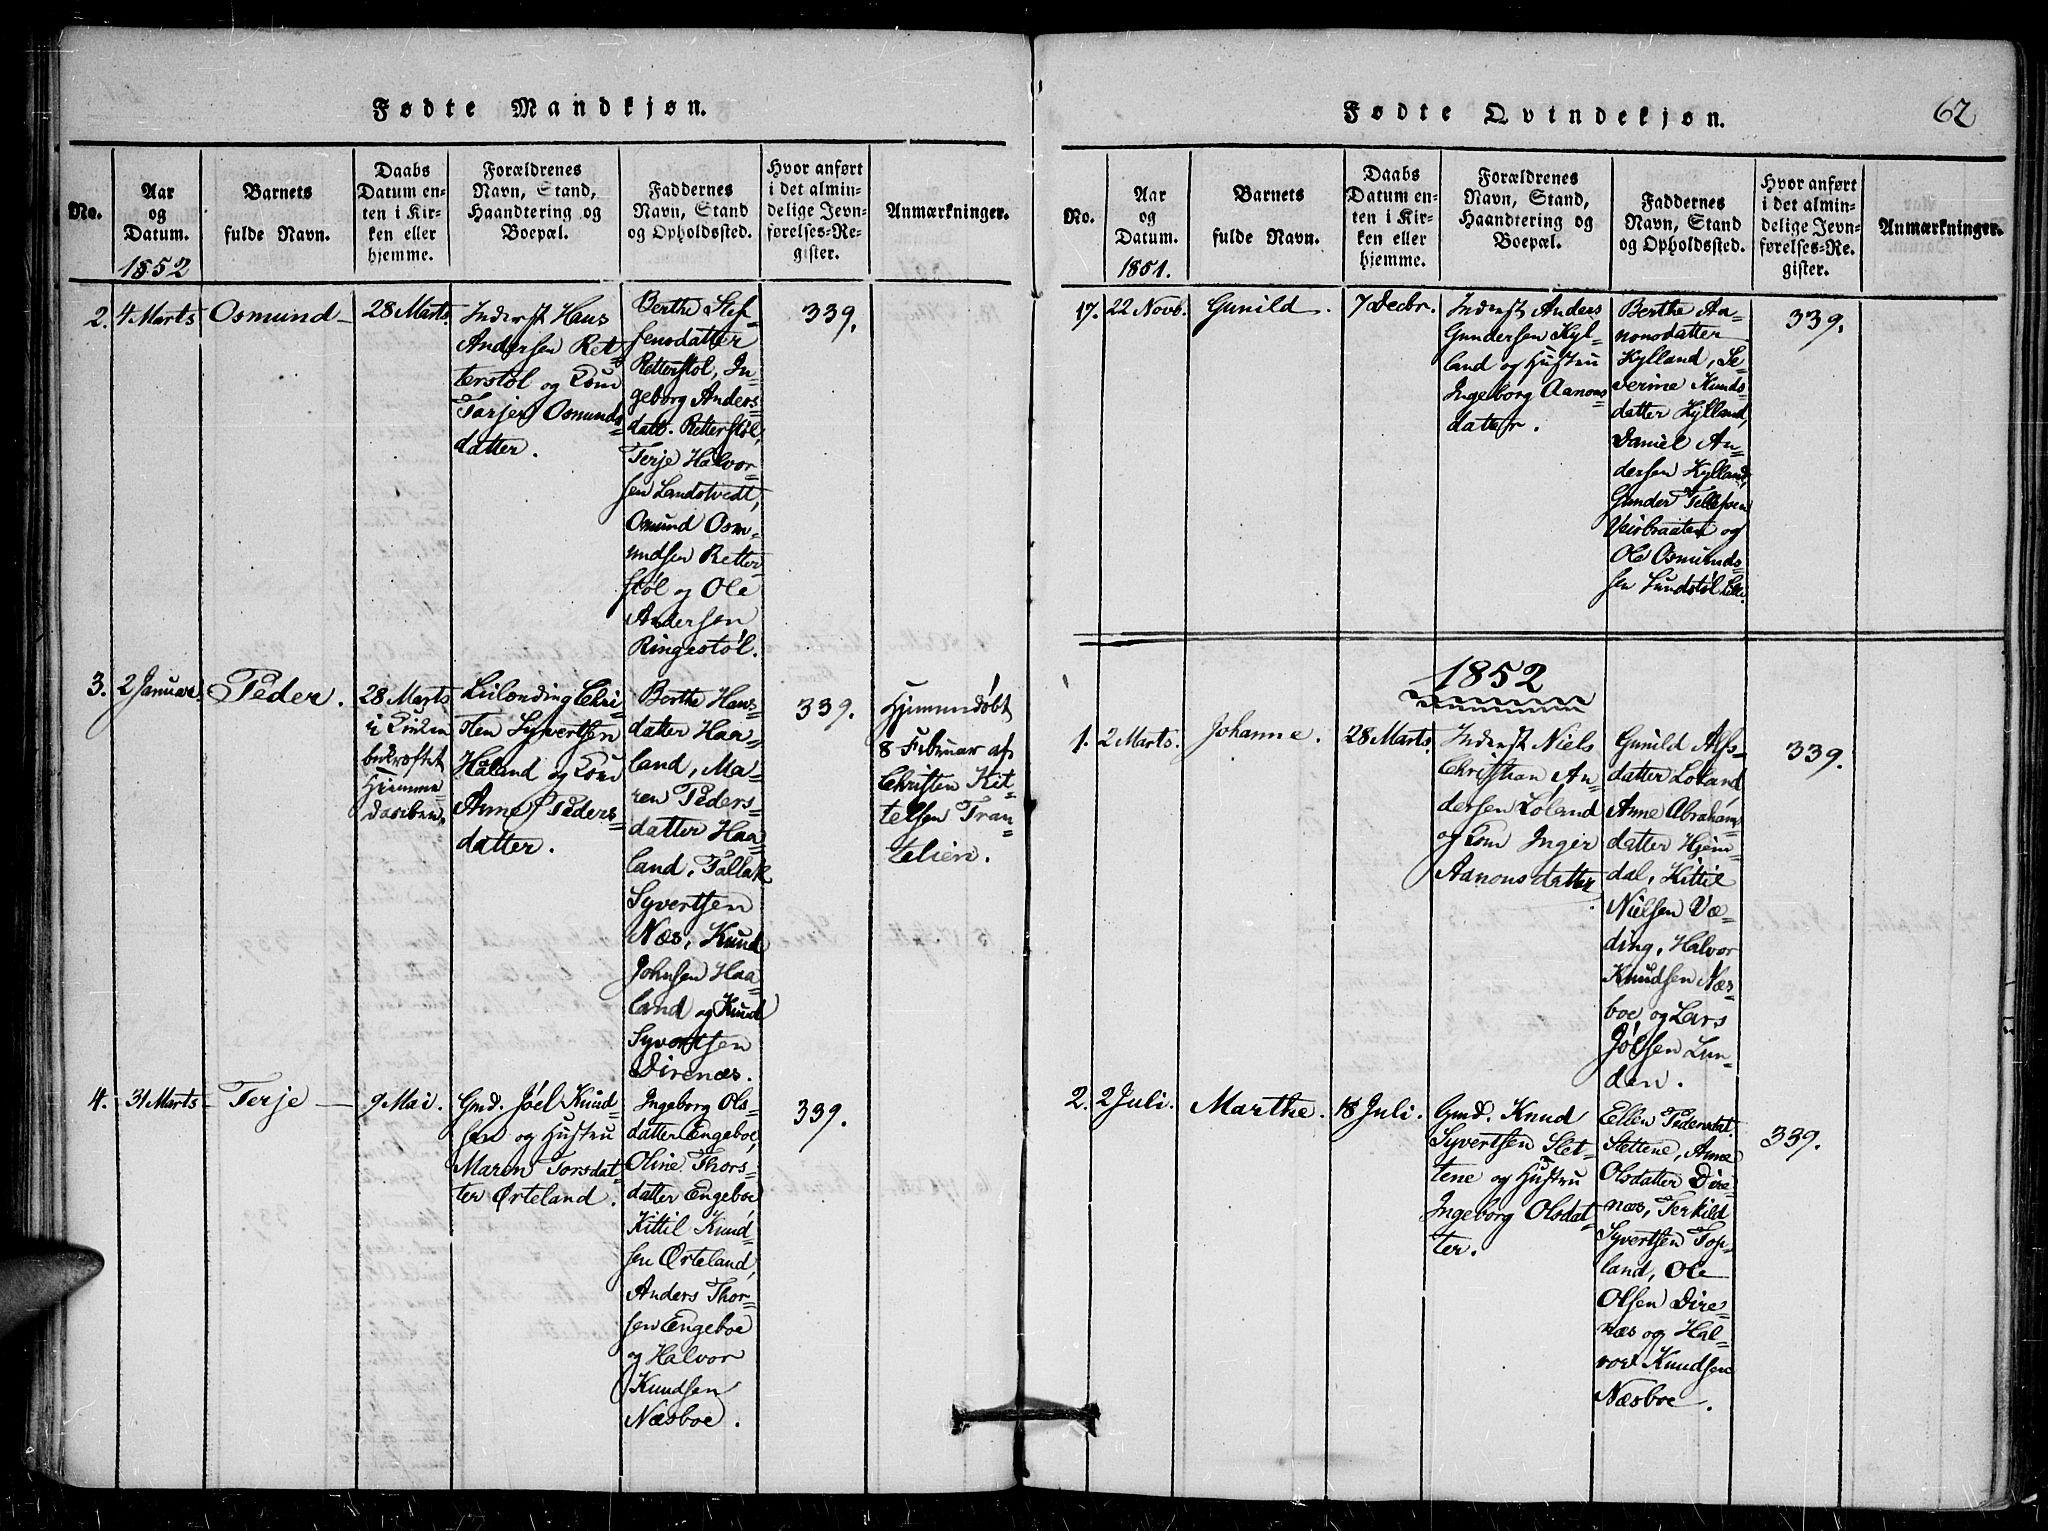 Fødte Mandkjøn.
No.
Aar
og
Datum.
1852
Barnets
fulde Navn.
Daabs
Datum en-
ten i Kir-
ken eller
hjemme.
Forældrenes
Navn, Stand,
Haandtering og
Boepæl.
Faddernes
Navn, Stand
og Opholdssted.
Hvor anført
i det almin-
delige Jevn-
førelses-Re-
gister.
Anmærkninger.
2. 4 Marts
Osmund
28 Marts.
Inderst Hans
Andersen Ret=
terstøl og Kone
Tarjer Osmunds=
datter.
Berthe Stef=
fensdatter
Retterstøl, In=
geborg Anders=
datt. Retterstøl,
Terje Halvor=
sen Landstvedt,
Osmund Osm=
undsen Retter=
støl og Ole
Andersen
Ringestøl.
339.
3. 2 Januar.
Peder.
28 Marts
i Kirken
bekræftet
Hjemme
daaben.
Leilænding Chri=
sten Syvertsen
Haland og Kone
Anne Peders=
datter.
Berthe Hans=
datter Haa=
land, Ma=
ren Peders=
datter Haa=
land, Tallak
Syvertsen
Næs, Knud
Johnsen Haa=
land og Knud
Syvertsen
Direnæs.
339.
Hjemmedøbt
8 Februar af
Christen Kit=
telsen Tran=
telien.
4. 31 Marts
Terje
9 Mai.
Gmd. Jóel Knud=
sen og Hustru
Maren Torsdat=
ter Ørteland.
Ingeborg Ols=
datter Engeboe,
Oline Thors=
datter Engeboe
Kittil Knud=
sen Ørteland,
Anders Thor=
sen Engeboe
og Halvor
Knudsen
Næsboe.
339.
62
Fødte Qvindekjøn.
No.
Aar
og
Datum.
1851.
Barnets
fulde Navn.
Daabs
Datum en-
ten i Kir-
ken eller
hjemme.
Forældrenes
Navn, Stand,
Haandtering og
Boepæl.
Faddernes
Navn, Stand
og Opholdssted.
Hvor anført
i det almin-
delige Jevn-
førelses-Re-
gister.
Anmærkninger.
17. 22 Novb.
Gunild.
7 Decbr.
Inderst Anders
Gundersen Kyl=
land og Hustru
Ingeborg Aanons=
datter.
Berthe Aa=
nonsdatter
Kylland, Se=
verine Knuds=
datter Kylland,
Daniel An=
dersen Kylland,
Gunder Tellefsen
Veisbraaten og
Ole Osmunds=
sen Lundstøl
339.
1852
1. 2 Marts.
Johanne.
28 Marts.
Inderst Niels
Christian An=
dersen Loland
og Kone Inger
Aanonsdatter.
Gunild Alfs=
datter Loland
Anne Abrahams=
datter Hjem=
dal, Kittil
Nielsen Væ=
ding, Halvor
Knudsen Næs=
boe og Lars
Jólsen Lun=
den.
339.
2. 2 Juli.
Marthe.
18 Juli.
Gmd. Knud
Syvertsen Slet=
tene og Hustru
Ingeborg Olsdat=
ter.
Ellen Pedersdat.
Slettene, Anne
Olsdatter Dire=
næs, Terkild
Syvertsen Top=
land, Ole
Olsen Dire=
næs og Hal=
vor Knudsen
Næsboe.
339.